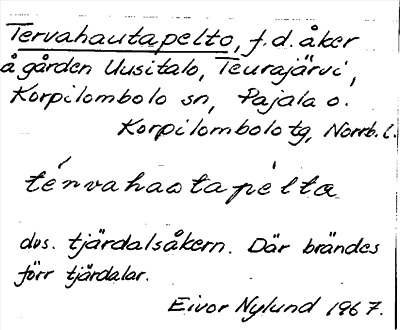 Tervahautapelto, f.d. åker
å gården Uusitalo, Teurajärvi,
Korpilombolo sn, Pajala o.
Korpilombolo tg, Norrb. l.
térvahaotapèlta
dvs. tjärdalsåkern. Där brändes
förr tjärdalar.
Eivor Nylund 1967.